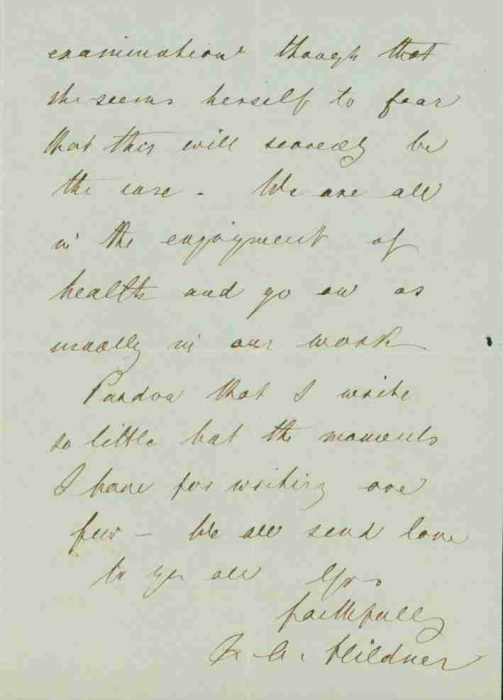 examination though that
she seems herself to fear
that this will scarcely be
the case - We are all
in the enjoyment of
health and go on as
usually in our work
Pardon that I write
so little but the moments
I have for writing are
few - We all send love
to you all Yrs
faithfully
Hildner